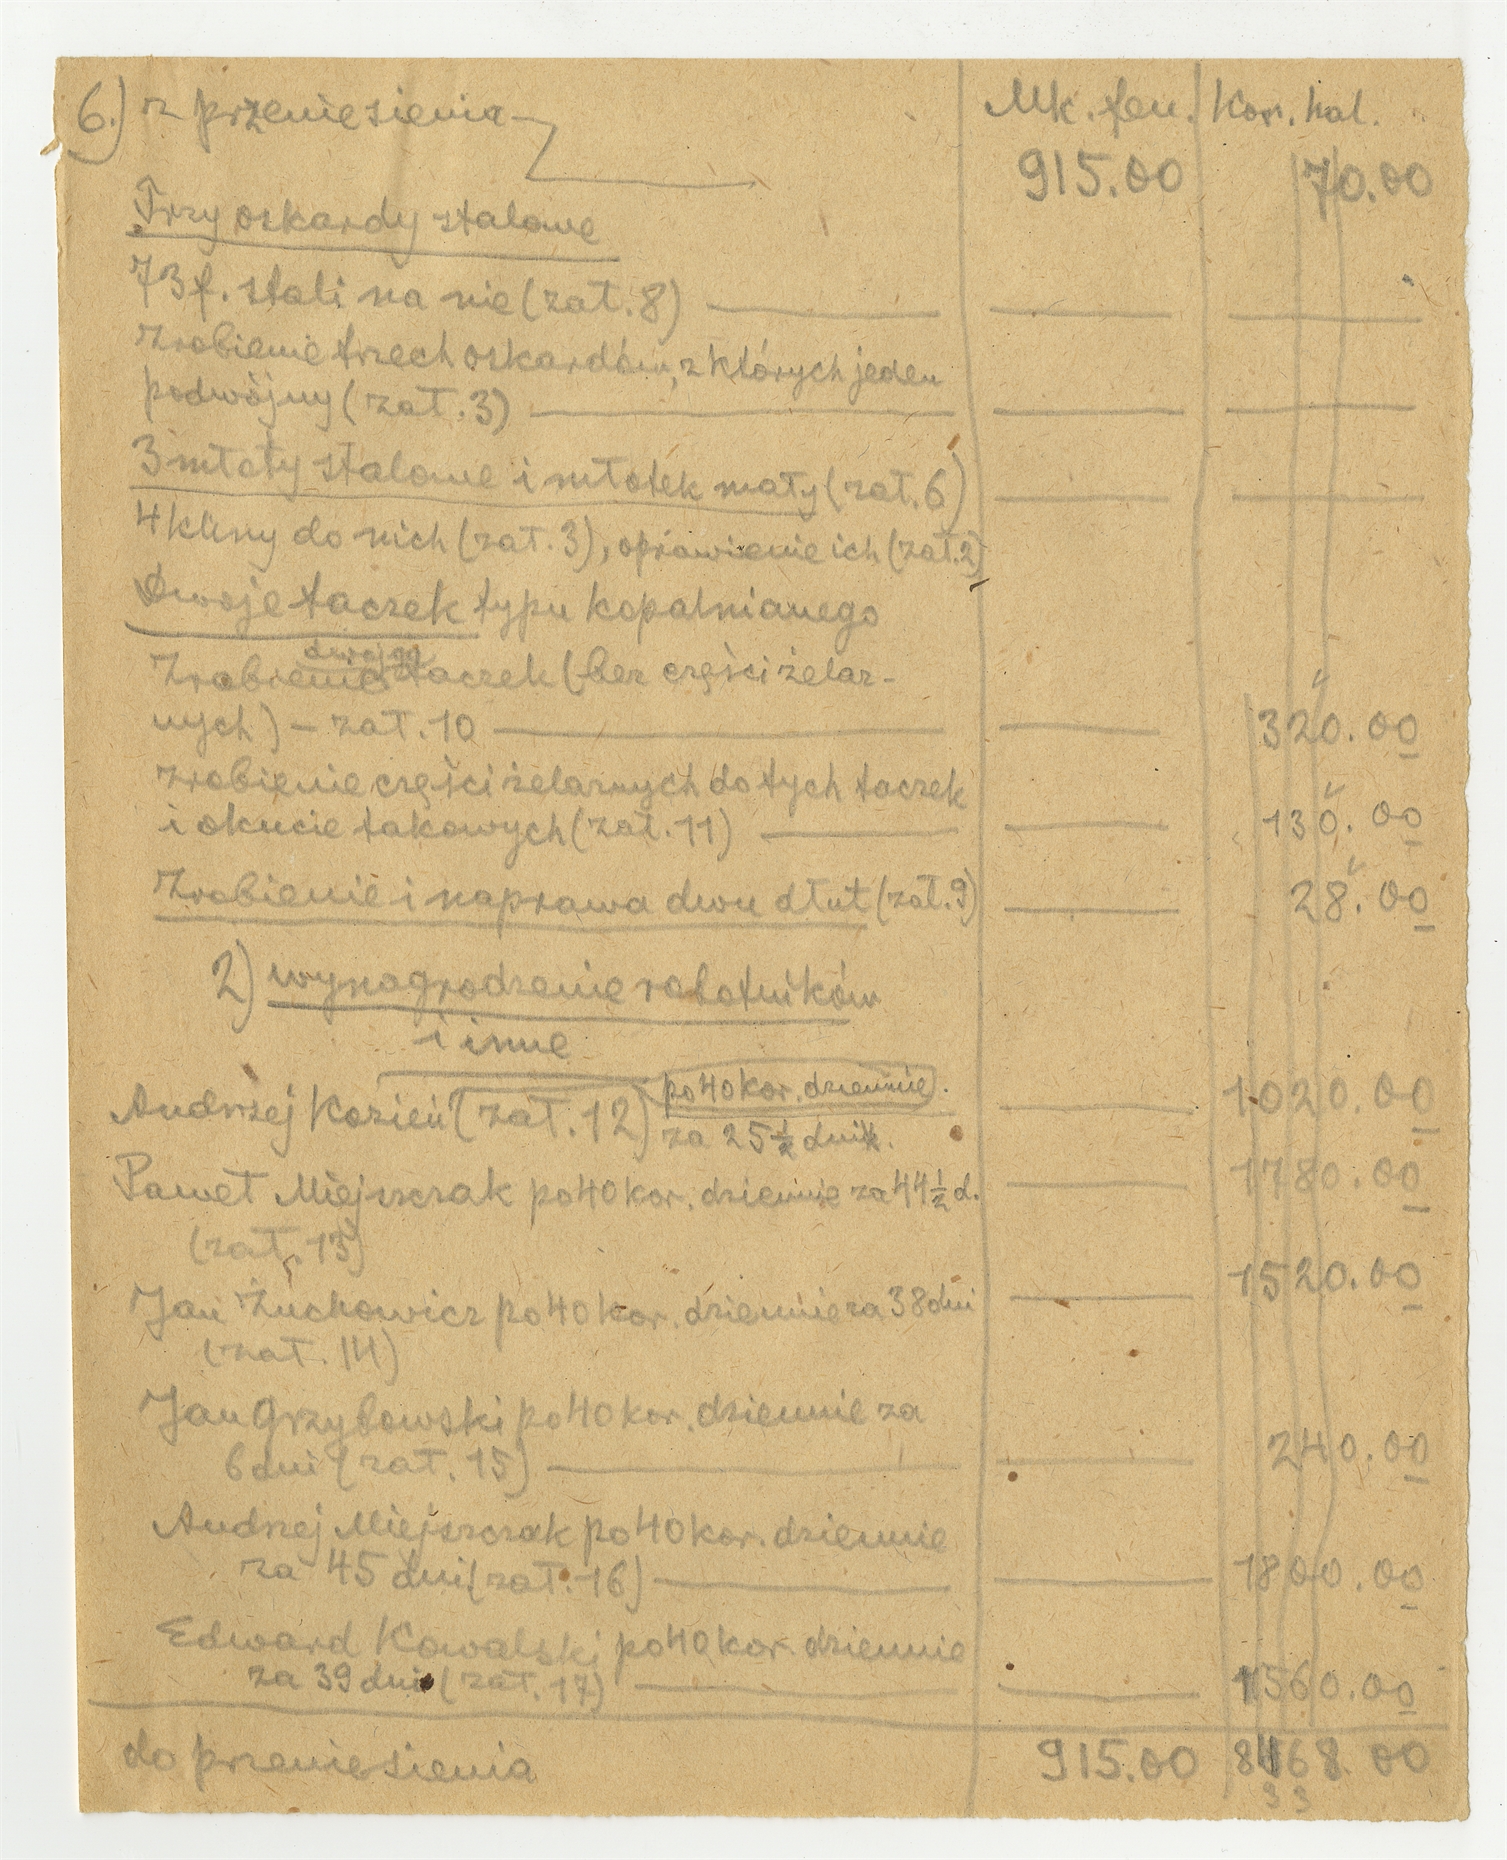 6.) z przeniesienia Mk. fen. Kor. hal.
915.00 70.00
Trzy oskardy stalowe
73 f. stali na nie (zał. 8)
Zrobienie trzech oskardów, z których jeden
podwójny (zał. 3)
3 młoty stalowe i młotek mały (zał. 6)
4 kliny do nich (zał. 3), oprawienie ich (zał. 2)
Dwoje taczek typu kopalnianego
dwojga
Zrobienie taczek (bez części żelaz-
nych) – zał. 10 320.00
Zrobienie części żelaznych do tych taczek
i okucie takowych (zał. 11) 130.00
Zrobienie i naprawa dwu dłut (zał. 9) 28.00
2) wynagrodzenie robotników
i inne
Andrzej Kozień (zał. 12) po 40 kor. dziennie. 1020.00
za 25 1/2 dni.
Paweł Miejszczak po 40 kor. dziennie za 44 1/2 d. 1780.00
(zał. 13)
Jan Żuchowicz po 40 kor. dziennie za 38 dni 1520.00
(zał. 14)
Jan Grzybowski po 40 kor. dziennie za
6 dni (zał. 15) 240.00
Andrzej Miejszczak po 40 kor. dziennie
za 45 dni (zał. 16) 1800.00
Edward Kowalski po 40 kor. dziennie
za 39 dni (zał. 17) 1560.00
do przeniesienia 915.00 8468.00
3 3